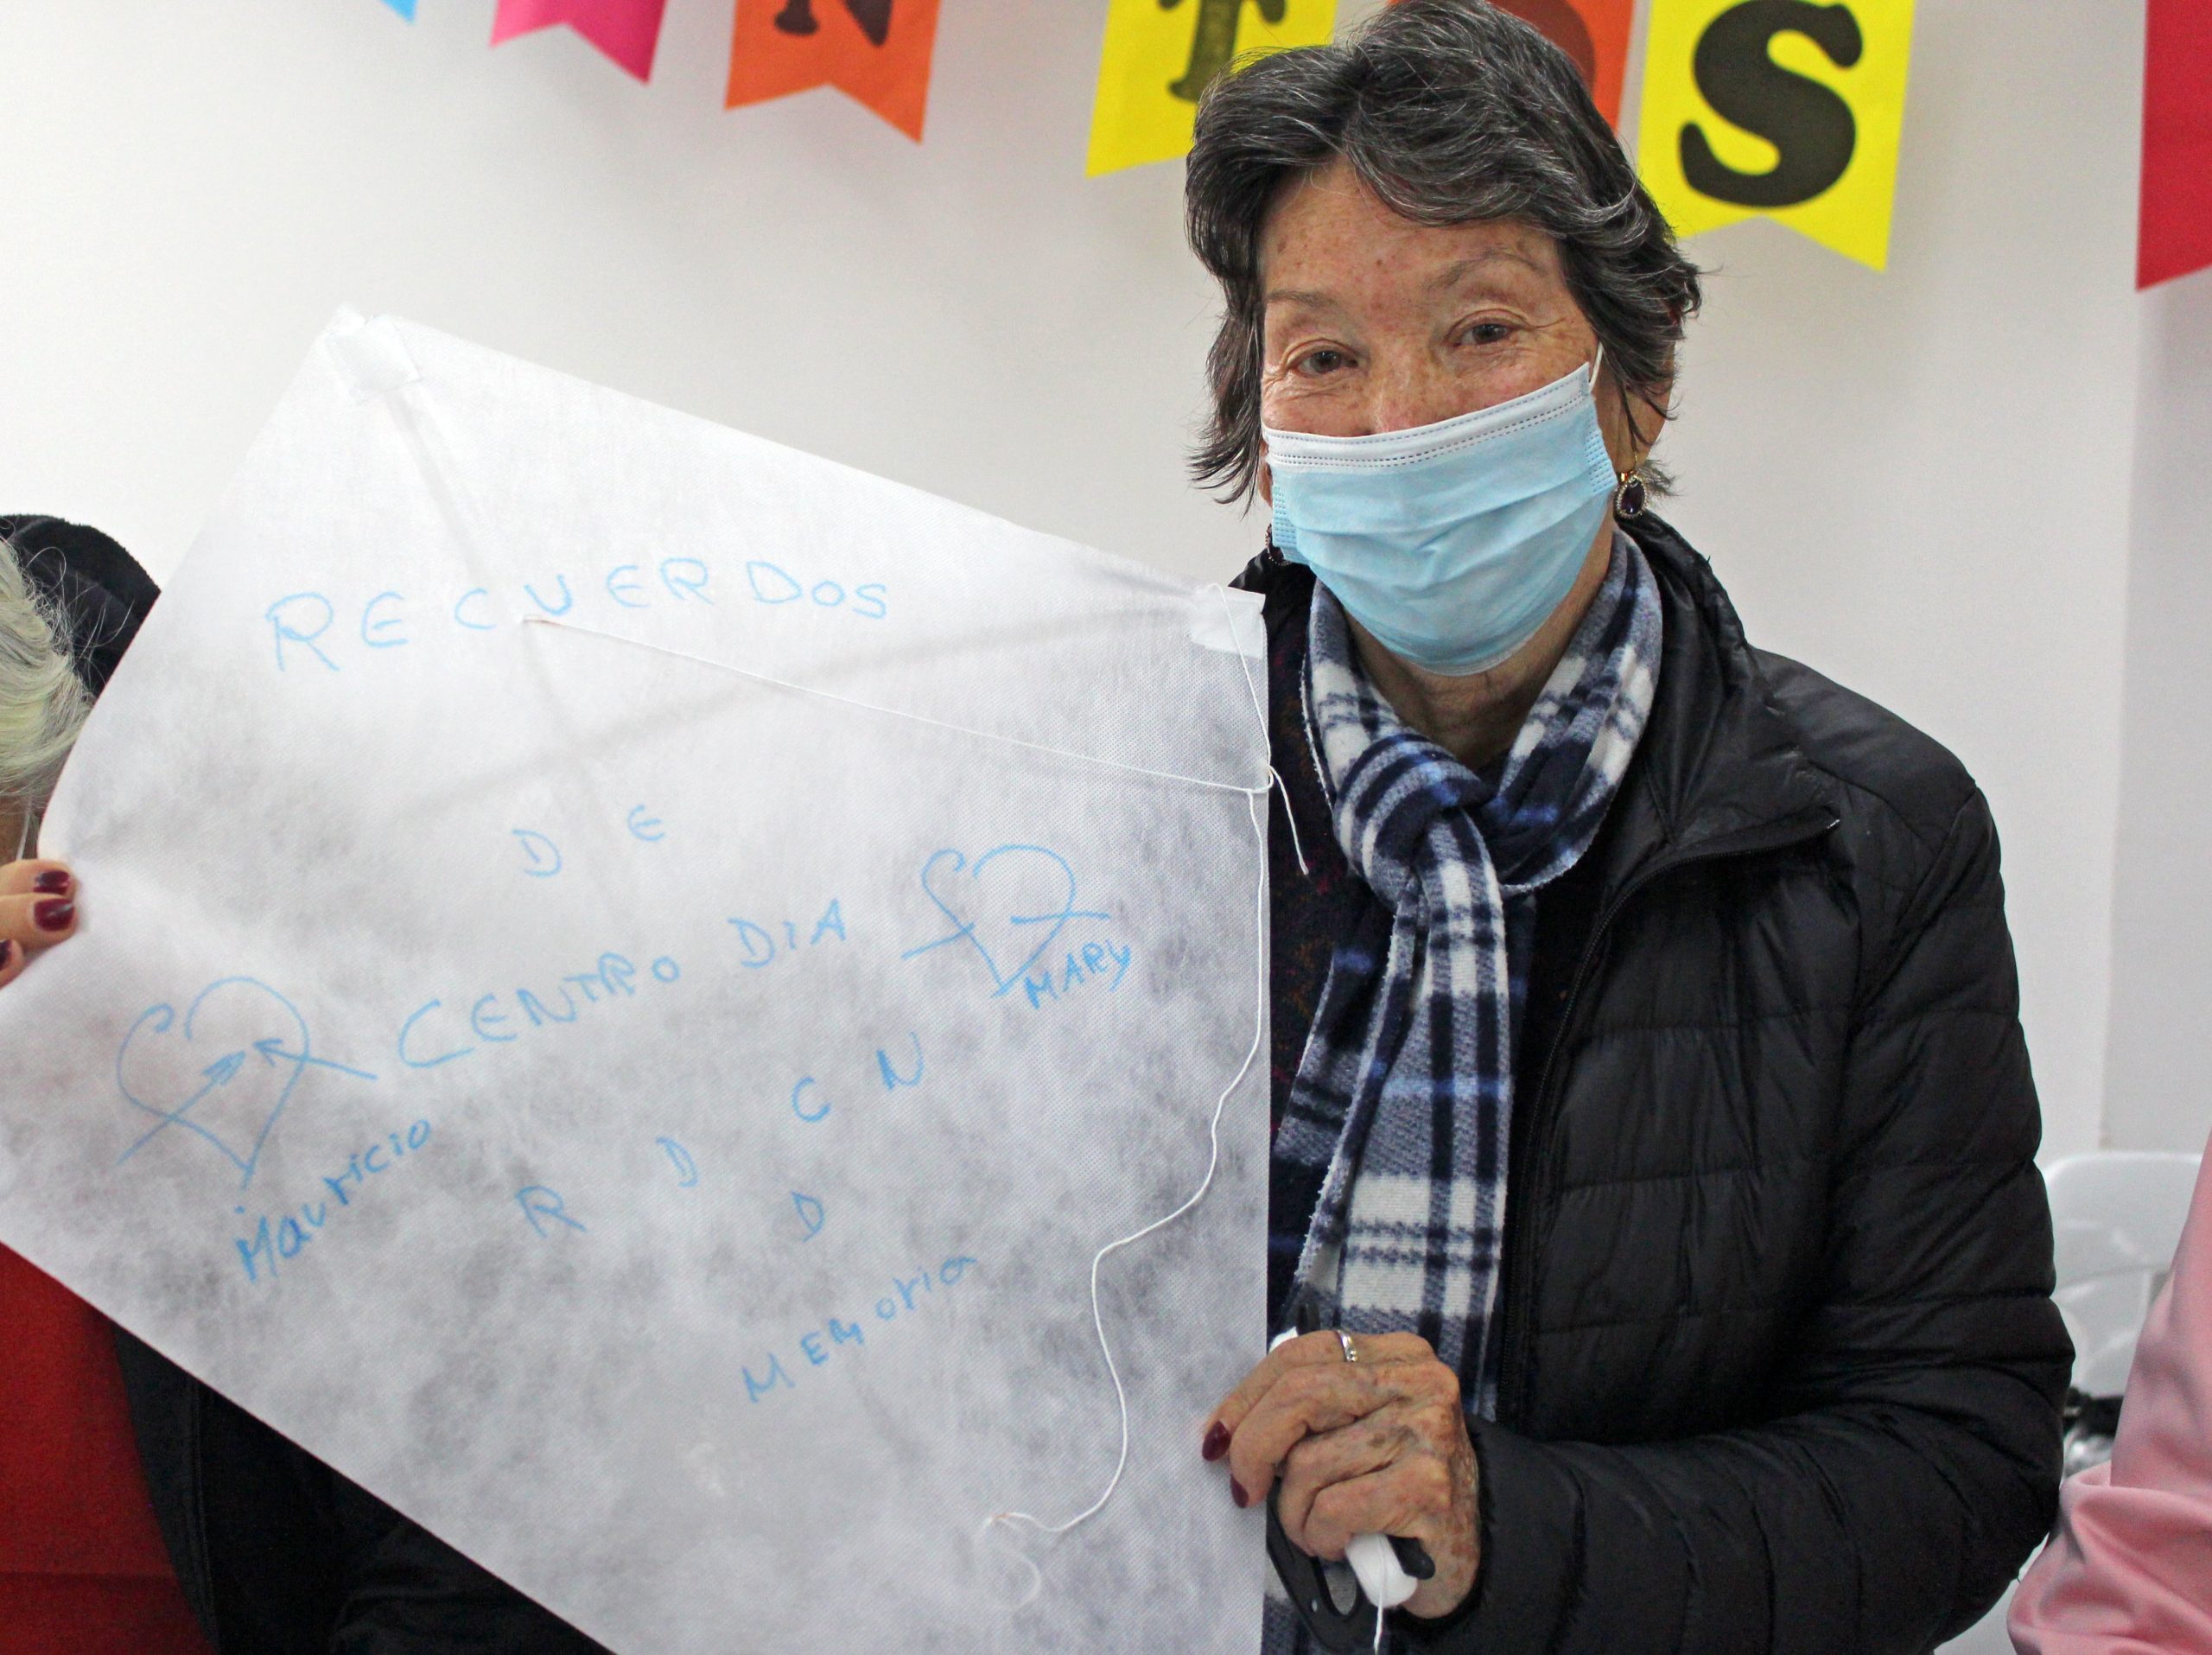 N T OS
RECUERDOS
DE
CENTRO DIA
MARY
Mauricio
C N
R D D
Memoria